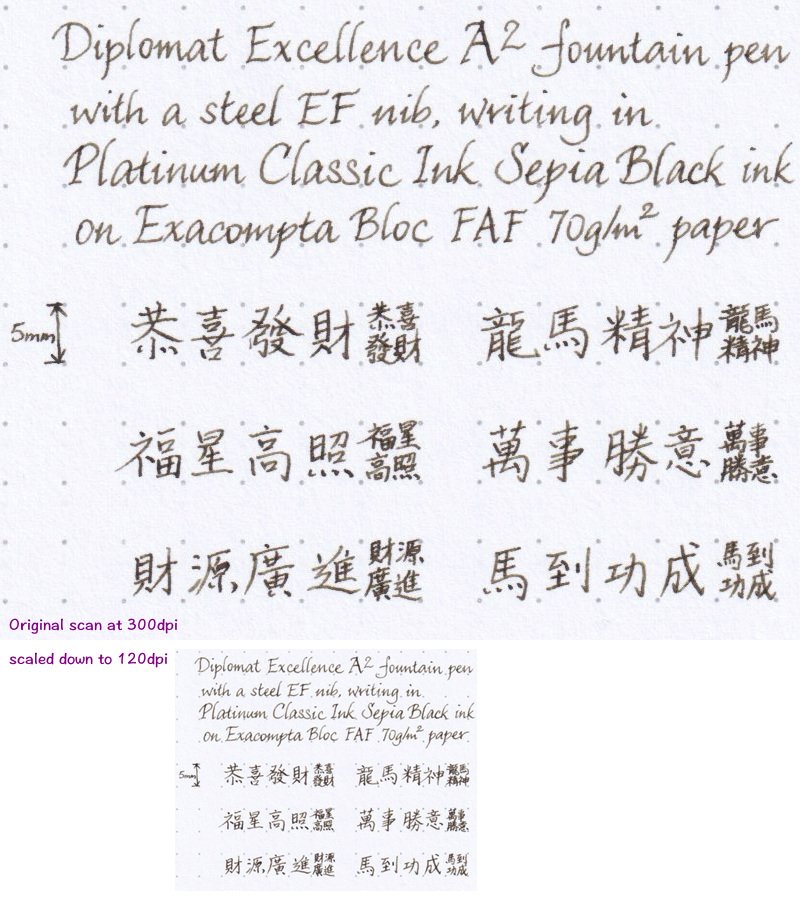 Diplomat Excellence A2 fountain pen
with a steel EF nib, writing in
Platinum Classic Ink Sepia Black ink
on Exacompta Bloc FAF 70g/m² paper
5mm 恭喜發財 恭喜發財 龍馬精神 龍馬精神
福星高照 福星高照 萬事勝意 萬事勝意
財源廣進 財源廣進 馬到功成 馬到功成
Original scan at 300dpi
scaled down to 120dpi
Diplomat Excellence A2 fountain pen
with a steel EF nib, writing in
Platinum Classic Ink Sepia Black ink
on Exacompta Bloc FAF 70g/m² paper
5mm 恭喜發財 恭喜發財 龍馬精神 龍馬精神
福星高照 福星高照 萬事勝意 萬事勝意
財源廣進 財源廣進 馬到功成 馬到功成